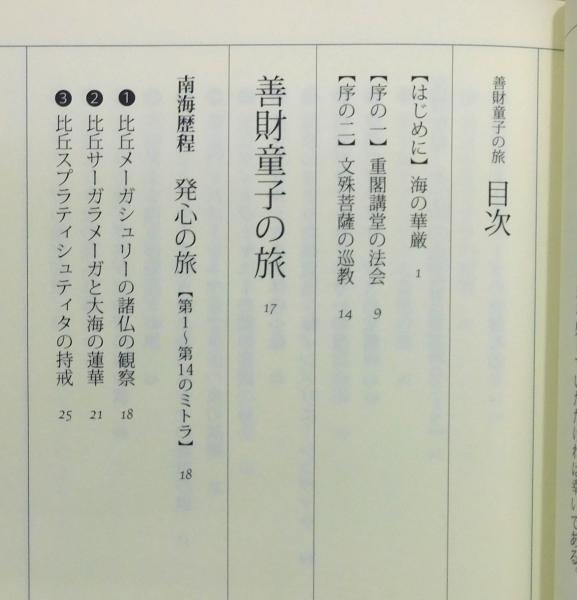 善財童子の旅 目次
【はじめに】 海の華厳 1
【序の一】 重閣講堂の法会 9
【序の二】 文殊菩薩の巡教 14
善財童子の旅 17
南海歴程 発心の旅 【第1〜第14のミトラ】 18
❶ 比丘メーガシュリーの諸仏の観察 18
❷ 比丘サーガラメーガと大海の蓮華 21
❸ 比丘スプラティシュティタの持戒 25